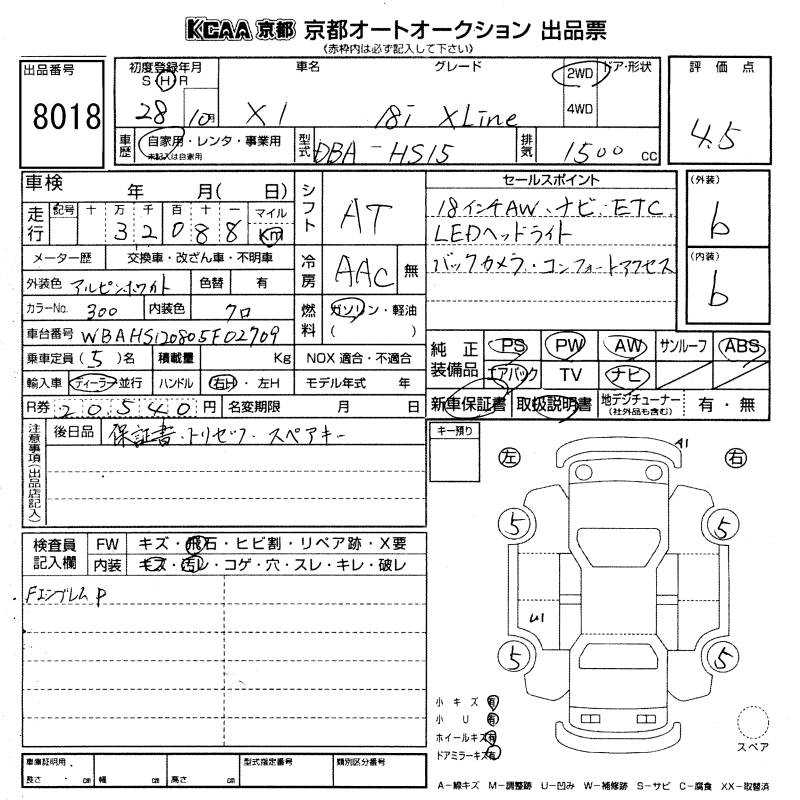 KCAA 京都 京都オートオークション 出品票
(赤枠内は必ず記入して下さい)
出品番号
8018
初度登録年月 車名 グレード 2WD ドア・形状
S H R
28 10月 X1 18i XLine 4WD
車歴 自家用・レンタ・事業用 未記入は自家用
型式 DBA-HS15 排気 1500 cc
評価点
4.5
車検 年 月( 日)
走行 記号 十 万 千 百 十 一 マイル
3 2 0 8 8 Km
メーター歴 交換車・改ざん車・不明車
外装色 アルピンホワイト 色替 有
カラーNo. 300 内装色 クロ
車台番号 WBAHS120805F02709
乗車定員(5)名 積載量 Kg NOX 適合・不適合
輸入車 ディーラー 並行 ハンドル 右H・左H モデル年式 年
R券 20540 円 名変期限 月 日
シフト AT
冷房 AAC 無
燃料 ガソリン・軽油
( )
セールスポイント
18インチAW、ナビ、ETC
LEDヘッドライト
バックカメラ・コンフォートアクセス
(外装)
b
(内装)
b
純正装備品 PS PW AW サンルーフ ABS
エアバック TV ナビ
新車保証書 取扱説明書 地デジチューナー (社外品も含む) 有・無
注意事項(出品店記入)
後日品 保証書・トリセツ・スペアキー
キー預り
左 右
A1
5 5
U1
5 5
検査員記入欄 FW キズ・飛石・ヒビ割・リペア跡・X要
内装 キズ・汚レ・コゲ・穴・スレ・キレ・破レ
Fエンブレム P
小キズ 有
小U 有
ホイールキズ 有
ドアミラーキズ 有
スペア
車庫証明用 型式指定番号 類別区分番号
長さ cm 幅 cm 高さ cm
A-線キズ M-調整跡 U-凹み W-補修跡 S-サビ C-腐食 XX-取替済